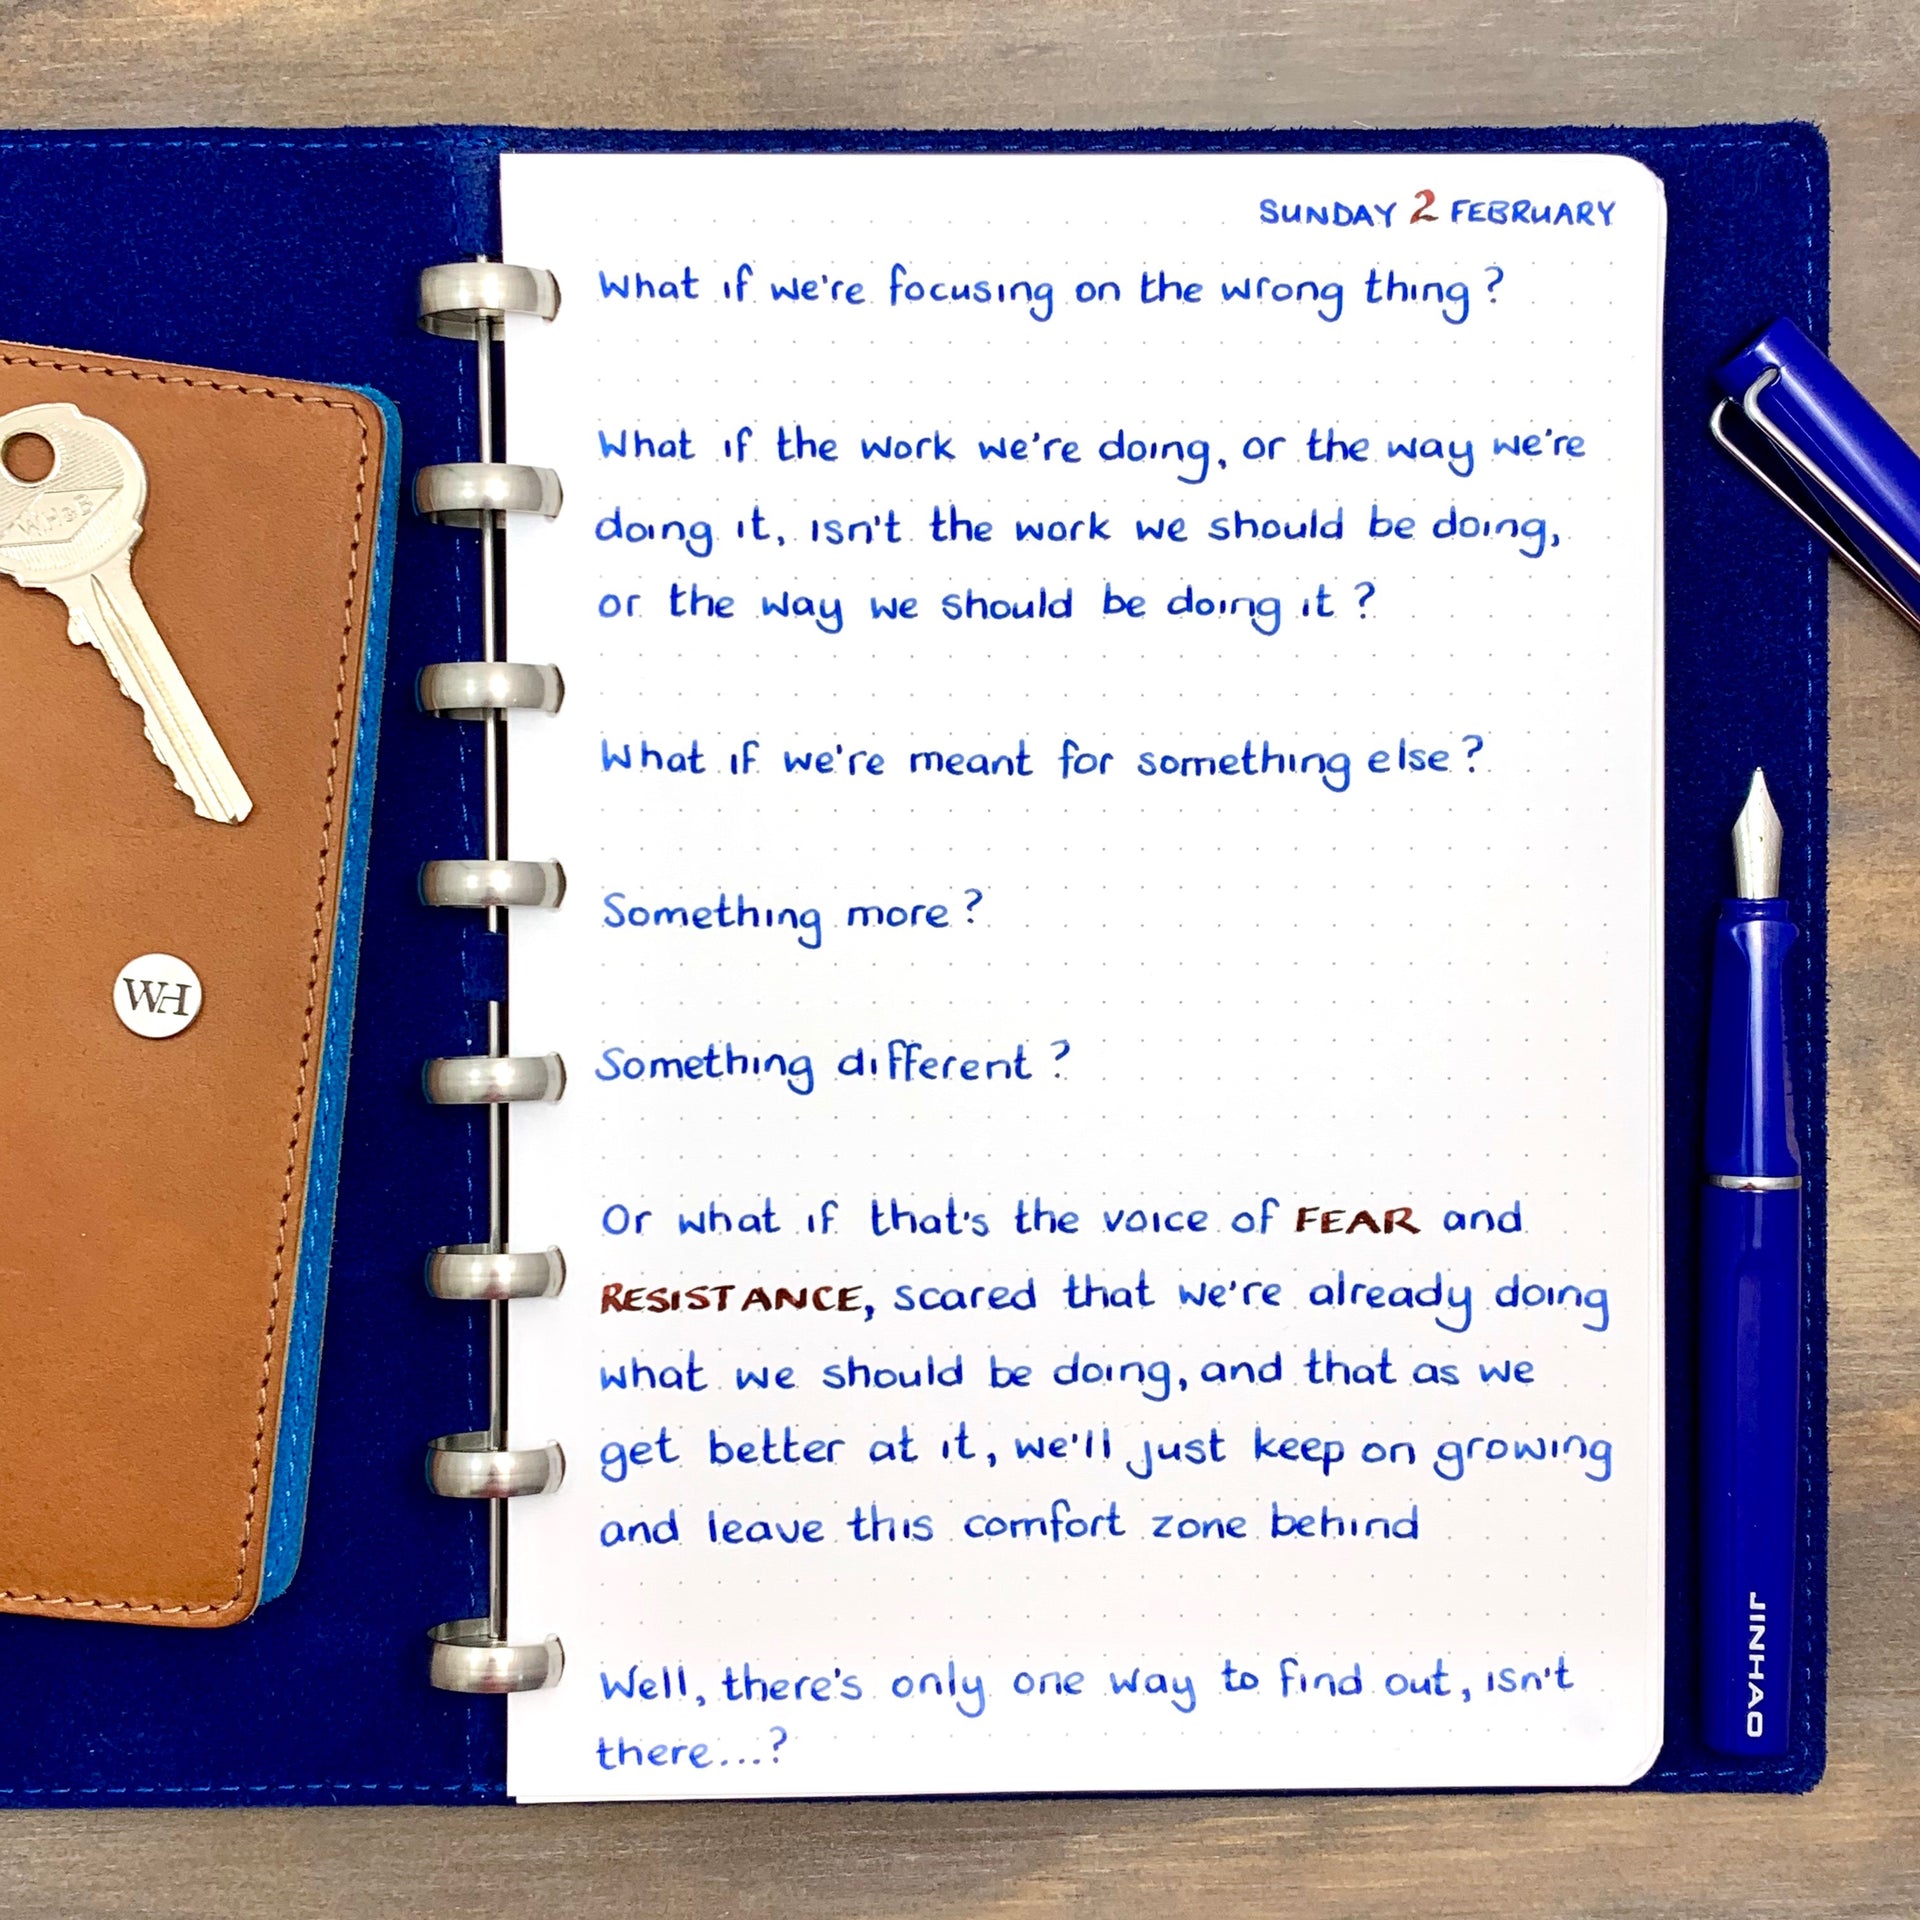 SUNDAY 2 FEBRUARY
What if we're focusing on the wrong thing?
What if the work we're doing, or the way we're
doing it, isn't the work we should be doing,
or the way we should be doing it?
What if we're meant for something else?
Something more?
Something different?
Or what if that's the voice of FEAR and
RESISTANCE, scared that we're already doing
what we should be doing, and that as we
get better at it, we'll just keep on growing
and leave this comfort zone behind
Well, there's only one way to find out, isn't
there...?
WH
JINHAO